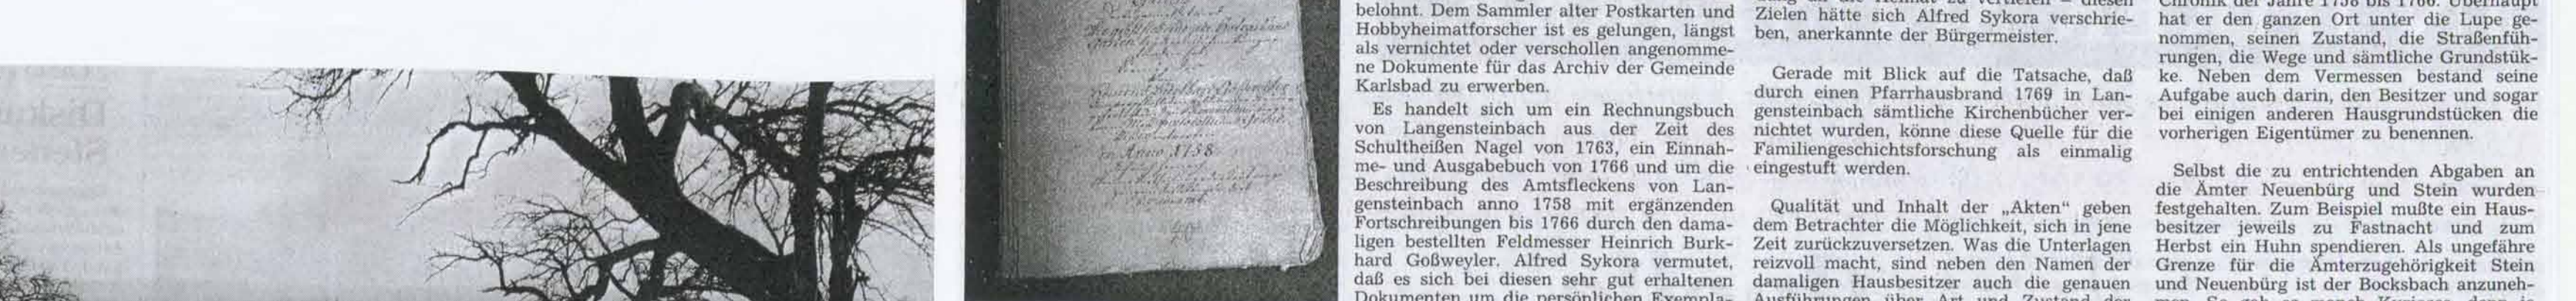 in Anno 1758
belohnt. Dem Sammler alter Postkarten und
Hobbyheimatforscher ist es gelungen, längst
als vernichtet oder verschollen angenomme-
ne Dokumente für das Archiv der Gemeinde
Karlsbad zu erwerben.
Es handelt sich um ein Rechnungsbuch
von Langensteinbach aus der Zeit des
Schultheißen Nagel von 1763, ein Einnah-
me- und Ausgabebuch von 1766 und um die
Beschreibung des Amtsfleckens von Lan-
gensteinbach anno 1758 mit ergänzenden
Fortschreibungen bis 1766 durch den dama-
ligen bestellten Feldmesser Heinrich Burk-
hard Goßweyler. Alfred Sykora vermutet,
daß es sich bei diesen sehr gut erhaltenen
Dokumenten um die persönlichen Exempla-
Zielen hätte sich Alfred Sykora verschrie-
ben, anerkannte der Bürgermeister.
Gerade mit Blick auf die Tatsache, daß
durch einen Pfarrhausbrand 1769 in Lan-
gensteinbach sämtliche Kirchenbücher ver-
nichtet wurden, könne diese Quelle für die
Familiengeschichtsforschung als einmalig
eingestuft werden.
Qualität und Inhalt der „Akten“ geben
dem Betrachter die Möglichkeit, sich in jene
Zeit zurückzuversetzen. Was die Unterlagen
reizvoll macht, sind neben den Namen der
damaligen Hausbesitzer auch die genauen
Ausführungen über Art und Zustand der
Chronik der Jahre 1758 bis 1766. Überhaupt
hat er den ganzen Ort unter die Lupe ge-
nommen, seinen Zustand, die Straßenfüh-
rungen, die Wege und sämtliche Grundstük-
ke. Neben dem Vermessen bestand seine
Aufgabe auch darin, den Besitzer und sogar
bei einigen anderen Hausgrundstücken die
vorherigen Eigentümer zu benennen.
Selbst die zu entrichtenden Abgaben an
die Ämter Neuenbürg und Stein wurden
festgehalten. Zum Beispiel mußte ein Haus-
besitzer jeweils zu Fastnacht und zum
Herbst ein Huhn spendieren. Als ungefähre
Grenze für die Ämterzugehörigkeit Stein
und Neuenbürg ist der Bocksbach anzuneh-